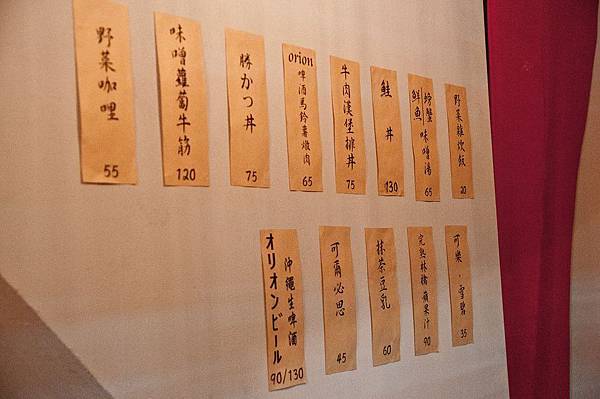 野菜咖哩
55
味噌蘿蔔牛筋
120
勝かつ丼
75
orion
啤酒馬鈴薯燉肉
65
牛肉漢堡排丼
75
鮭丼
130
螃蟹
鮮魚
味噌湯
65
野菜雜炊飯
20
沖繩生啤酒
オリオンビール
90/130
可爾必思
45
抹茶豆乳
60
完熟林檎蘋果汁
90
可樂．雪碧
35